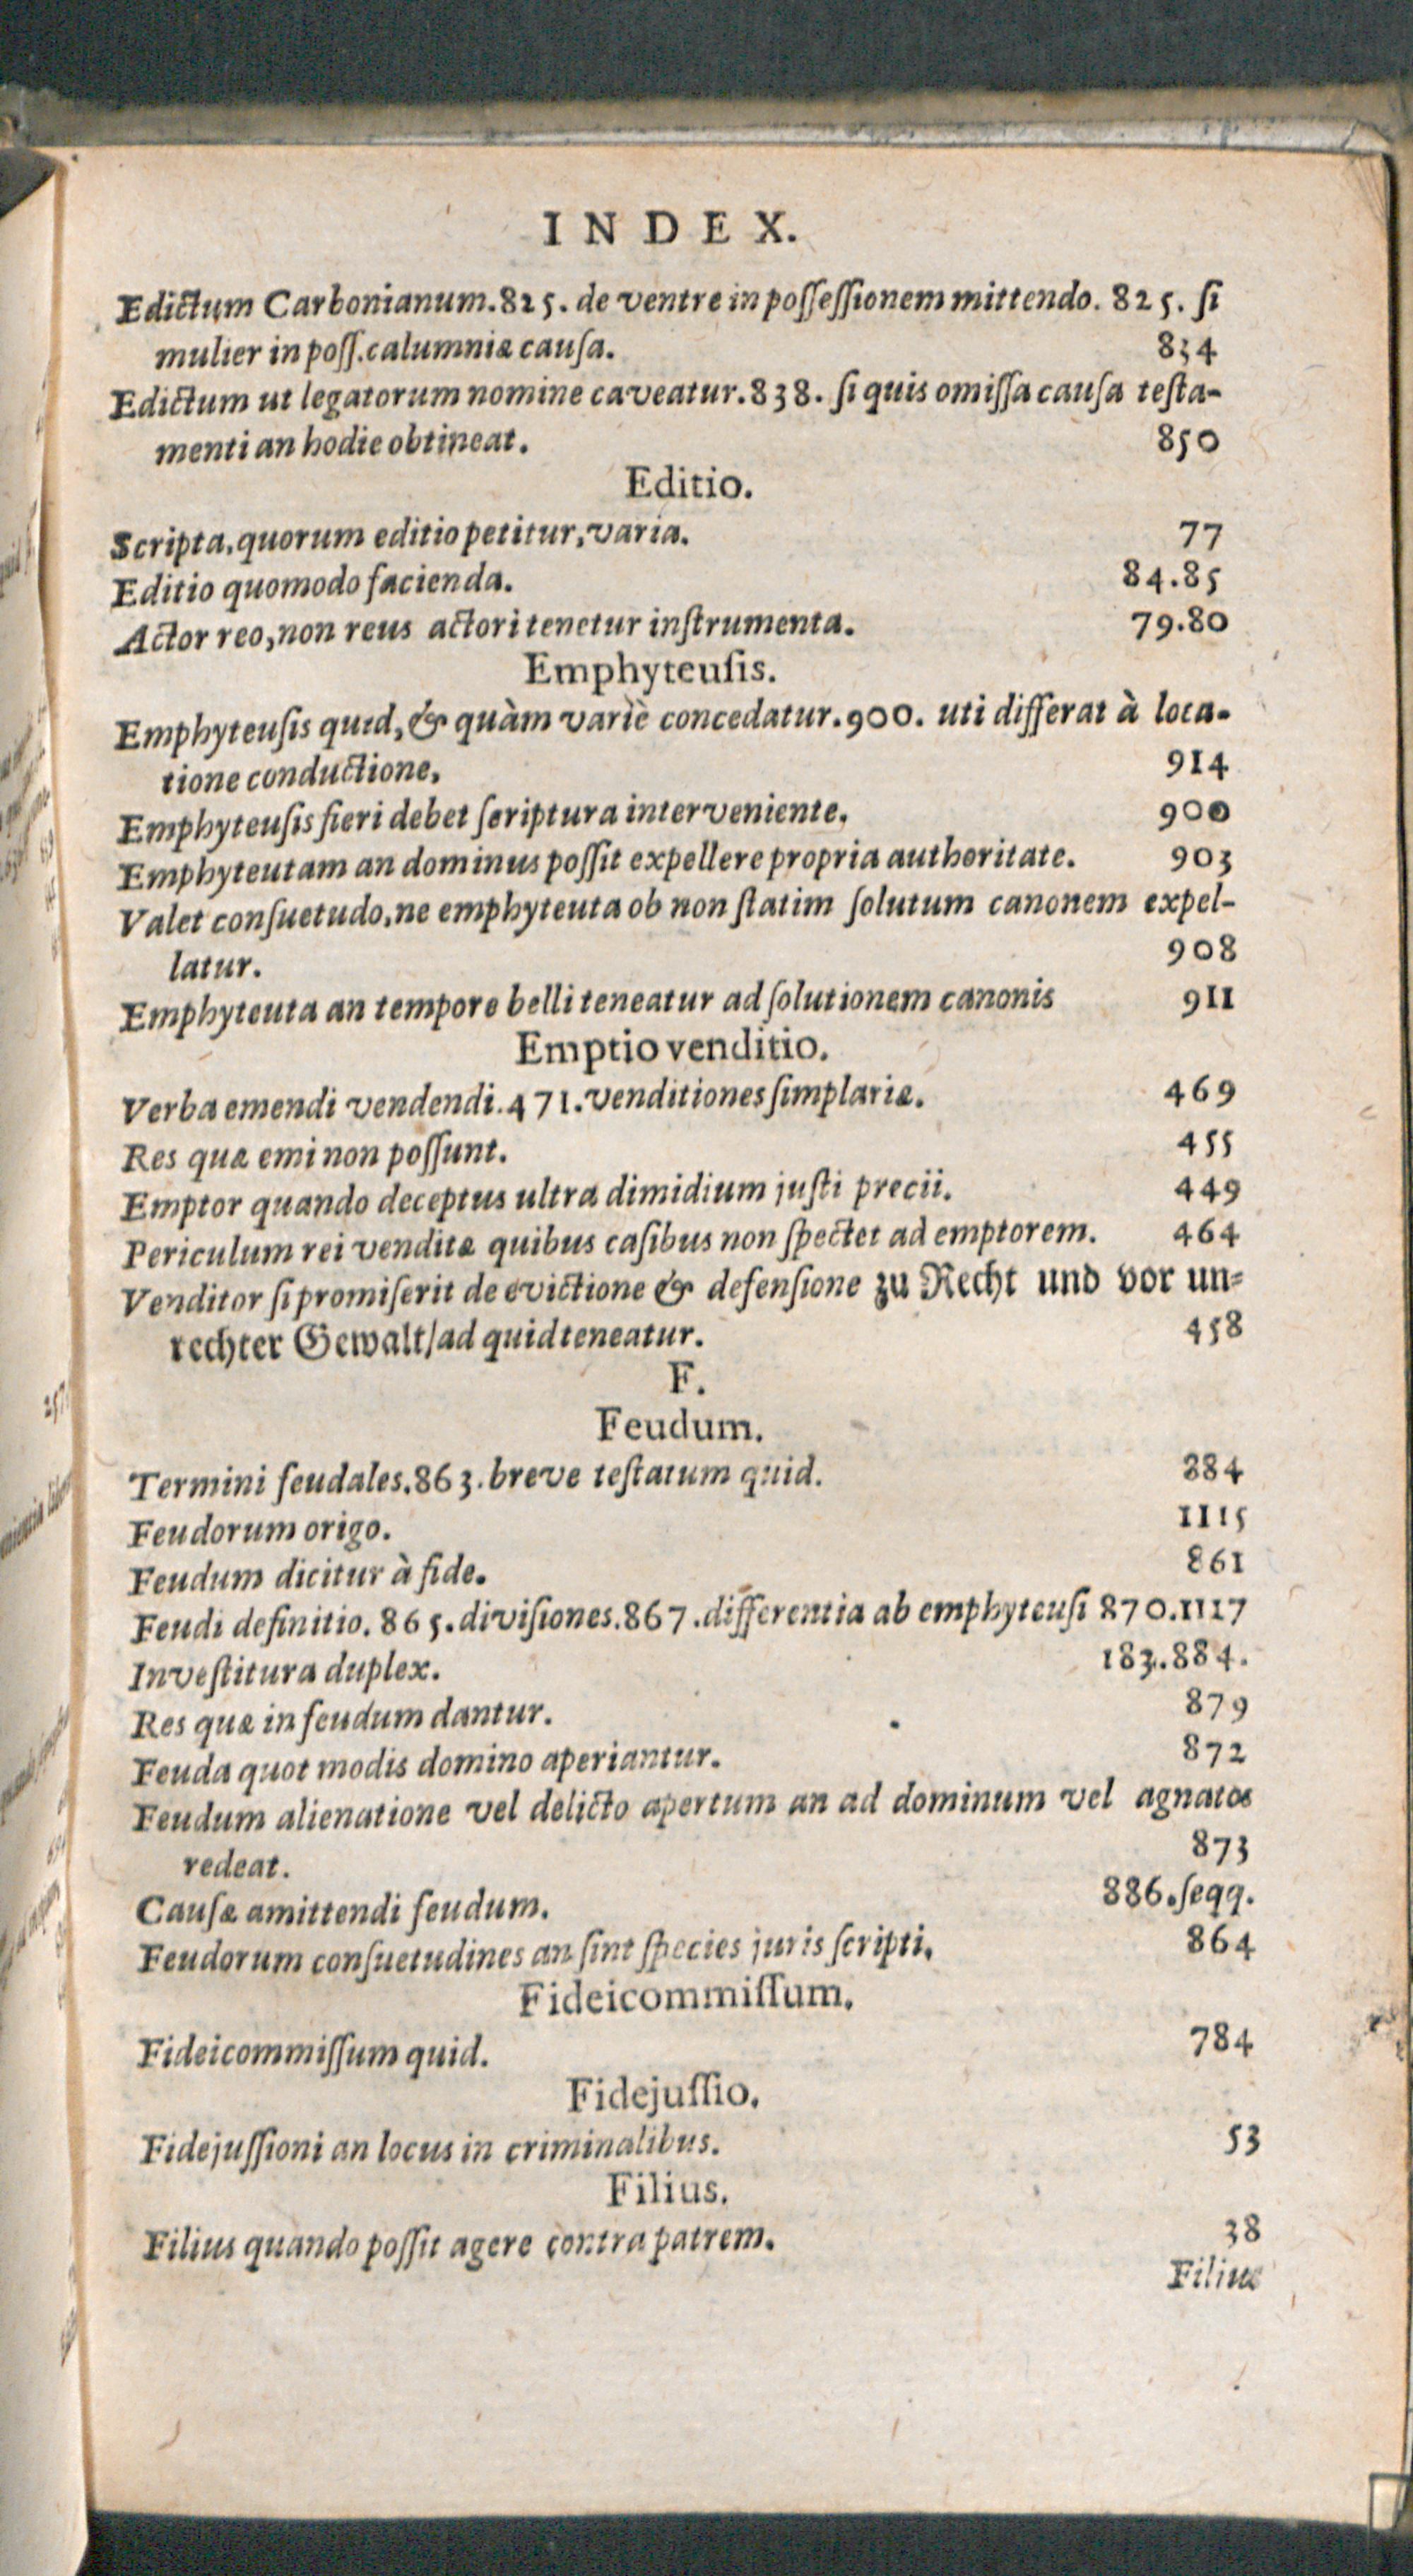 INDEX.
Edictum Carbonianum.825. de ventre in poſſeſſionem mittendo. 825. ſi
mulier in poſſ.calumniæ cauſa. 834
Edictum ut legatorum nomine caveatur.838. ſi quis omiſſa cauſa teſta-
menti an hodie obtineat. 850
Editio.
Scripta,quorum editio petitur,varia. 77
Editio quomodo facienda. 84.85
Actor reo,non reus actori tenetur inſtrumenta. 79.80
Emphyteuſis.
Emphyteuſis quid,& quàm variè concedatur.900. uti differat à loca-
tione conductione, 914
Emphyteuſis fieri debet ſcriptura interveniente. 900
Emphyteutam an dominus poſſit expellere propria authoritate. 903
Valet conſuetudo,ne emphyteuta ob non ſtatim ſolutum canonem expel-
latur. 908
Emphyteuta an tempore belli teneatur ad ſolutionem canonis 911
Emptio venditio.
Verba emendi vendendi.471.venditiones ſimplariæ. 469
Res quæ emi non poſſunt. 455
Emptor quando deceptus ultra dimidium juſti precii. 449
Periculum rei venditæ quibus caſibus non ſpectet ad emptorem. 464
Venditor ſi promiſerit de evictione & defenſione zu Recht und vor un-
rechter Gewalt/ad quid teneatur. 458
F.
Feudum.
Termini feudales.863.breve teſtatum quid. 884
Feudorum origo. 1115
Feudum dicitur à fide. 861
Feudi definitio. 865.diviſiones.867.differentia ab emphyteuſi 870.1117
Inveſtitura duplex. 183.884.
Res quæ in feudum dantur. 879
Feuda quot modis domino aperiantur. 872
Feudum alienatione vel delicto apertum an ad dominum vel agnatos
redeat. 873
Cauſæ amittendi feudum. 886.ſeqq.
Feudorum conſuetudines an ſint ſpecies juris ſcripti. 864
Fideicommiſſum.
Fideicommiſſum quid. 784
Fidejuſſio.
Fidejuſſioni an locus in criminalibus. 53
Filius.
Filius quando poſſit agere contra patrem. 38
Filius